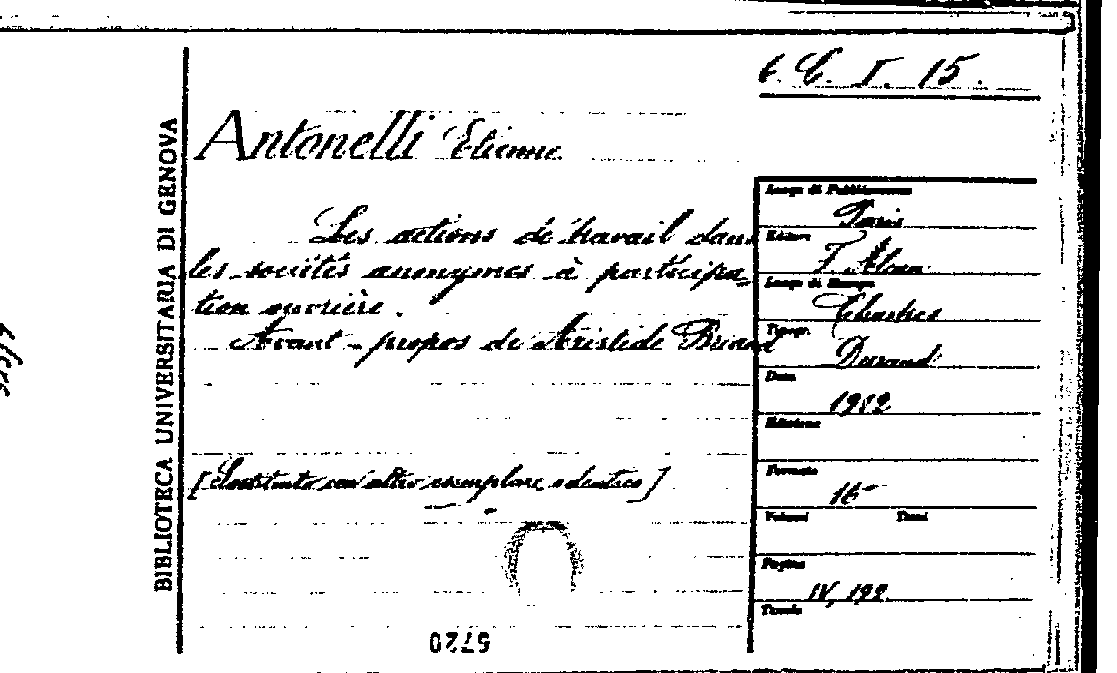 6. C. I. 15.
BIBLIOTECA UNIVERSITARIA DI GENOVA
Antonelli Etienne
Les actions de travail dans
les sociétés anonymes à participa-
tion ouvrière.
Avant-propos de Aristide Briand
[Sostituito con altro esemplare identico]
5720
Luogo di Pubblicazione
Paris
Editore
F. Alcan
Luogo di Stampa
Chartres
Tipogr.
Durand
Data
1912
Edizione
Formato
16°
Volumi Tomi
Pagine
IV, 192
Tavole